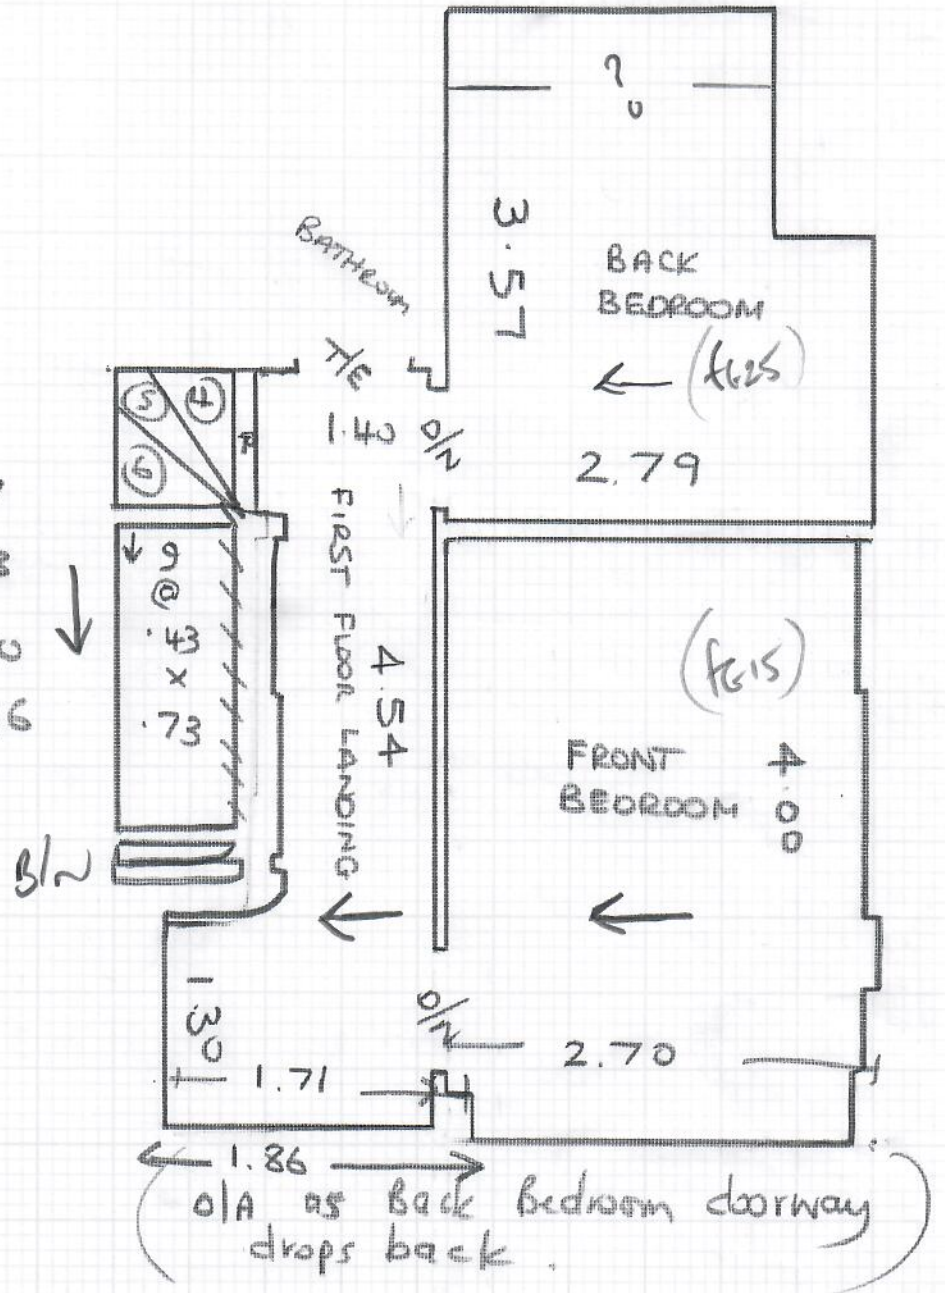 ?
3.57
BACK
BEDROOM
BATHROOM
T/E
1.40
O/N
2.79
5
4
6
R
9
@
.43
x
.73
FIRST FLOOR LANDING
4.54
FRONT
BEDROOM
4.00
B/N
1.30
O/N
1.71
2.70
1.86
(O/A as Back Bedroom doorway
drops back.)